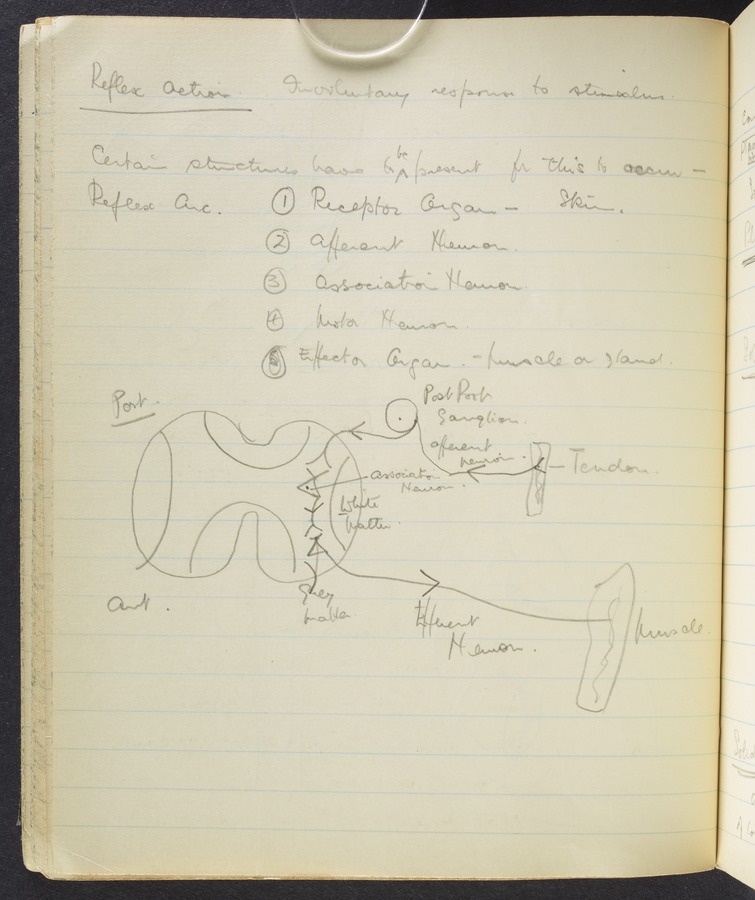 Reflex Action. Involuntary response to stimulus.
Certain structures have to be present for this to occur –
Reflex Arc. ① Receptor Organ – Skin.
② Afferent Neuron.
③ Association Neuron.
④ Motor Neuron.
⑤ Effector Organ. – Muscle or gland.
Post.
Post Root
Ganglion.
afferent
neuron.
– Tendon.
association
Neuron.
White
Matter.
Ant.
Grey
Matter
Efferent
Neuron.
Muscle.